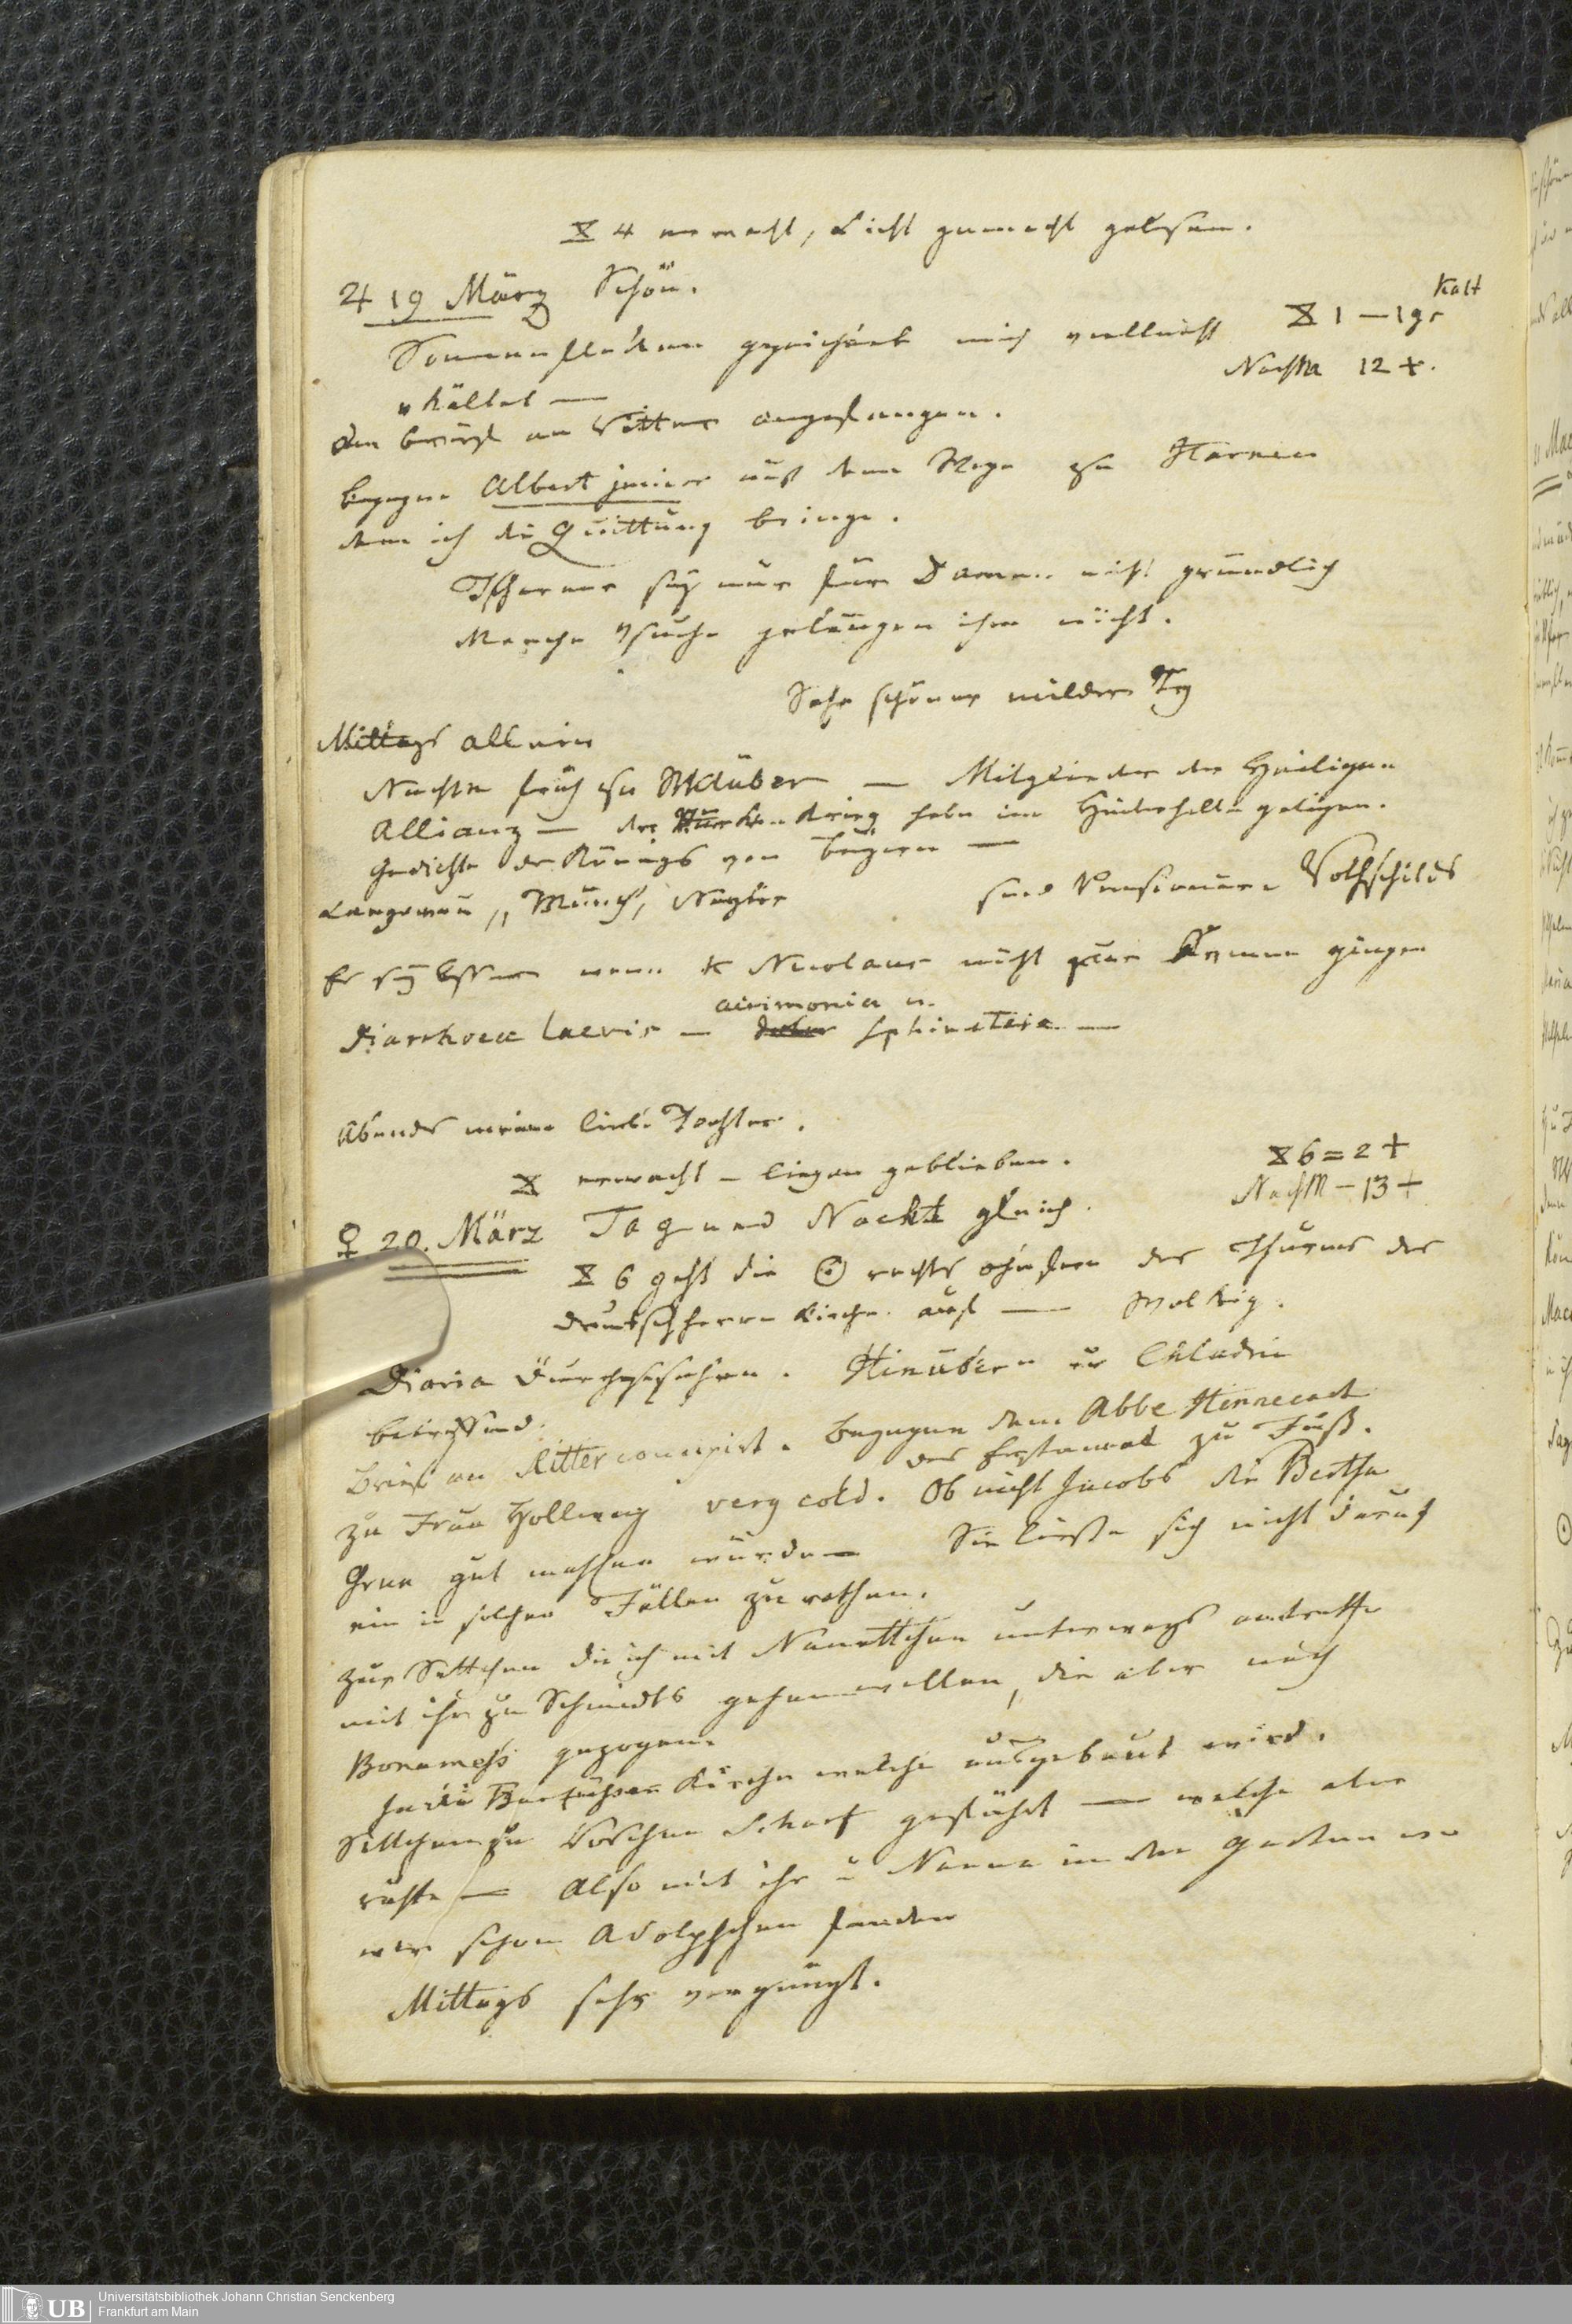 ⧖ 4 erwacht, Licht gemacht gelesen.
♃ 19 März Schön.
Kalt
Sonnenflecken gezeichnet mich vielleicht ⧖ 1 — 1 gr
Nachm 12 +.
erkältet —
Den Brief an Ritter angefangen.
begegne Albert junior auf dem Wege zu
dem ich die Quittung bringe.
sey nur für Damen nicht gründlich
Manche Versuche gelängen ihm nicht.
Sehr schöner milder Tag
Mittags allein
Nachm früh zu Klüber — Mitglieder der Heiligen
Allianz — der Türken Krieg habe im Hinterhalte gelegen.
Gedichte des Königs von Baÿern —
Münch, Nagler sind Pensionäre Rothschilds
Er seÿ besser wenn K Nicolaus nicht zur Armee gienge
acrimonia u.
Diarrhoea laevis — Sphincteric —
Abends meine liebe Tochter.
⧖ erwacht – liegen geblieben. ⧖ 6 = 2 +
NachM – 13 +
♀ 20. März Tag und Nacht gleich.
⧖ 6 geht die ☉ rechts ohnfern des Thurms der
Deutschherrn Kirche auf — Wolkig.
Diaria durchgesehen. Hinübern Chladni
betreffend.
Brief an Ritter concipirt. Begegne dem Abbe
zu Fuß.
zu Frau Hollweg very cold. Ob nicht Jacobs die Bertha
gut machen würde — Sie ließe sich nicht darauf
ein in solchen Fällen zu rathen.
zur Settchen die ich mit Nanettchen unterwegs antreffe
mit ihr zu Schmidts gehen wollen, die aber nach
Bonames gezogen.
In die Barfüsser Kirche welche ausgebaut wird.
Settchen zu Röschen Scharf geführt — welche aber
ruhte — Also mit ihr u Nanne in den Garten wo
wir schon Adolphchen fanden
Mittags sehr vergnügt.
Universitätsbibliothek Johann Christian Senckenberg
Frankfurt am Main
UB